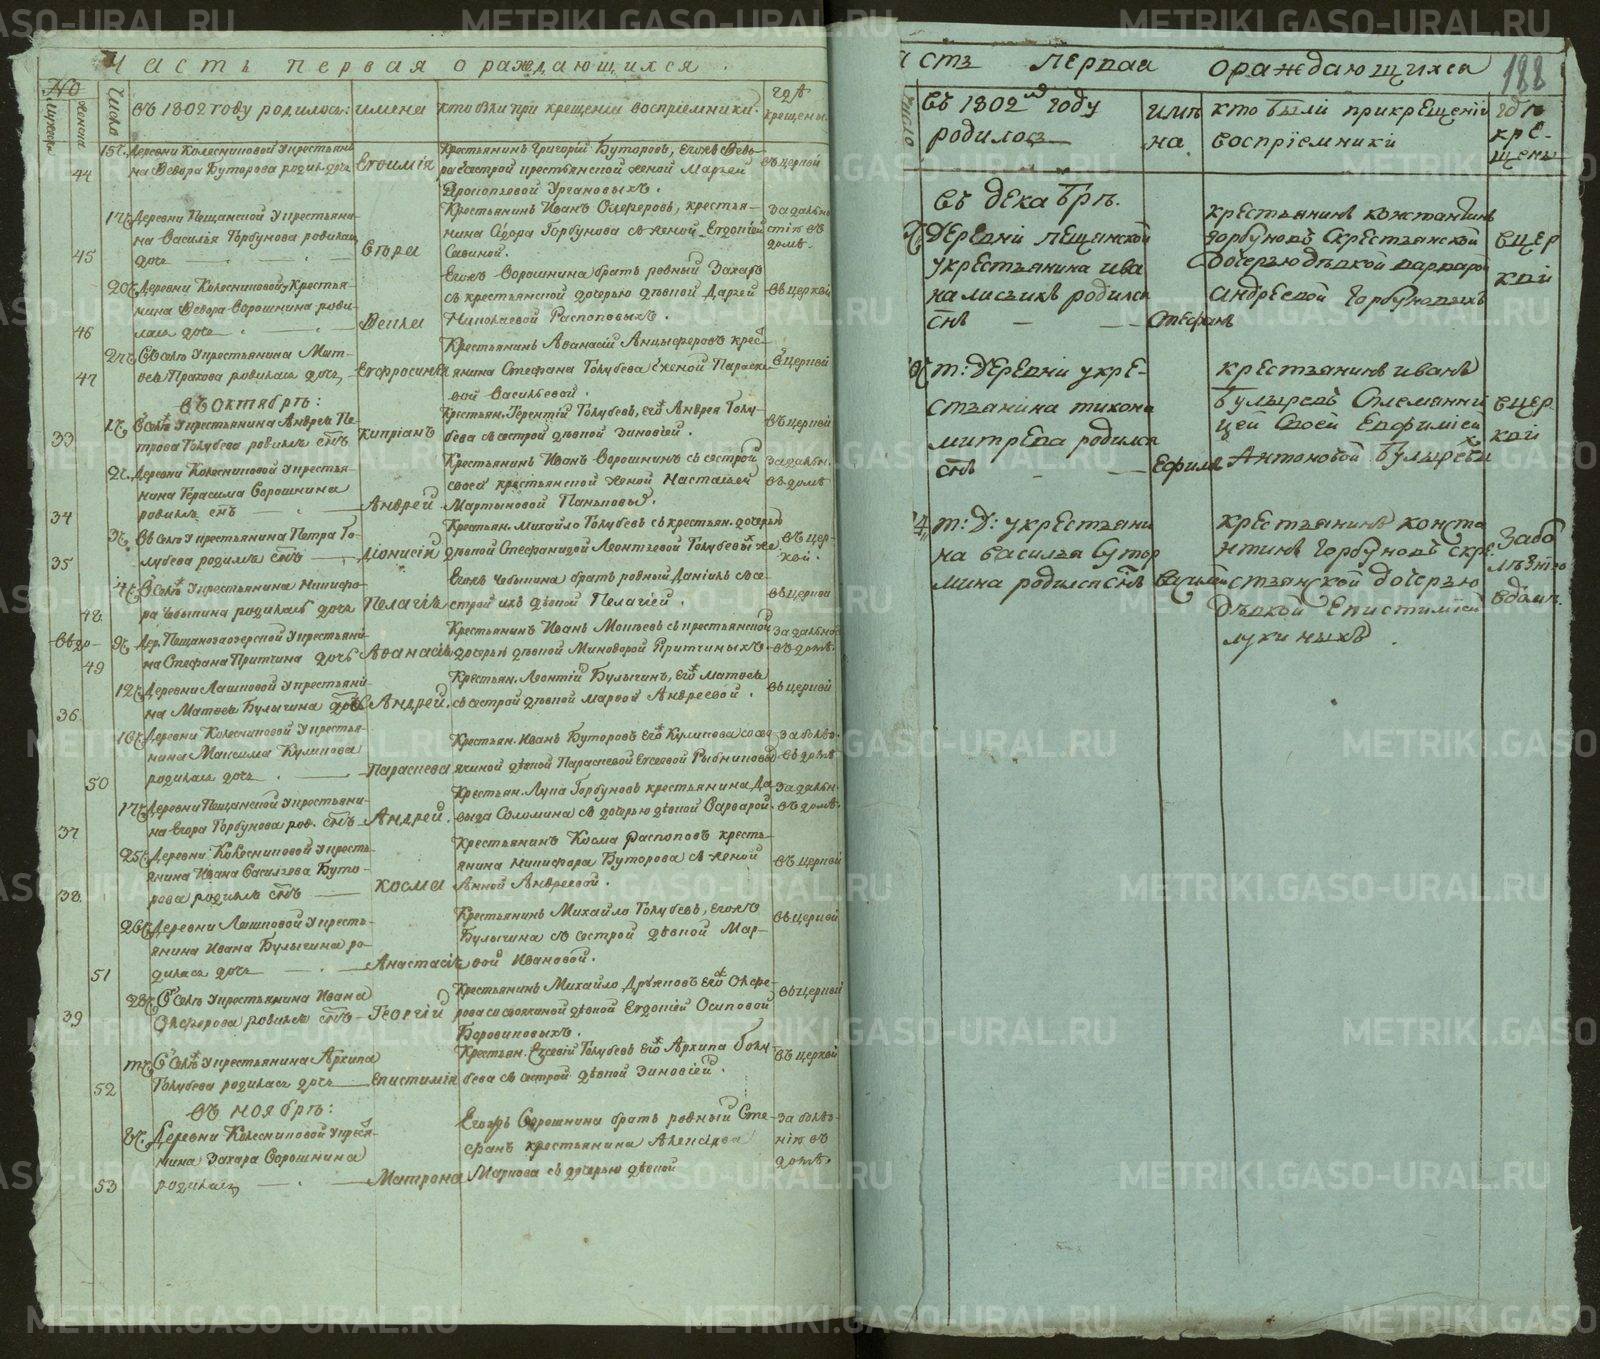 Часть первая ораждающихся.
No
Мужеска
Женска
Число
въ 1802 году родилось:
имена
кто были при крещенiи воспрiемники.
гдѣ крещены.
44
15.
Деревни Колесниковой у крестьяни-
на Ѳедора Буторова родилась дочь
Евѳимiя
Крестьянинъ Григорiй Буторовъ, Егожъ Ѳедо-
ра сестрой крестьянской женой Марѳей
Прокопьевой
въ церкви
45
17.
Деревни Пещанской у крестьяни-
на Василья Горбунова родилась
дочь
Крестьянинъ Иванъ Олеѳеровъ, крестья-
нина Сидора Горбунова съ женой Евдокiей
Савиной.
за дально-
стiю въ
домѣ.
46
20.
Деревни Колесниковой у крестья-
нина Ѳедора Ворошнина роди-
лась дочь
Ѳекла
Егожъ Ворошнина братъ родный Захаръ
съ крестьянской дочерью дѣвкой Дарьей
Николаевой Распоповыхъ.
въ церкви
47
Въ селѣ у крестьянина Мат-
ѳея Прахова родилась дочь
Евфросинiя
Крестьянинъ Аѳанасiй Анцыферовъ крес-
янина Стеѳана Голубева съ женой Параске-
вой Васильевой.
въ церкви
въ октябрѣ:
33
17.
В селѣ у крестьянина Андрея Пе-
трова Голубева родился сынъ
Кипрiанъ
Крестьян. Терентiй Голубевъ, его Андрея Голу-
бева съ сестрой дѣвкой Зиновiей.
въ церкви
34
2.
Деревни Колесниковой у крестья-
нина Герасима Ворошнина
родился сынъ
Андрей
Крестьянинъ Иванъ Ворошнинъ съ сестрой
своей крестьянской женой Настасьей
Мартыновой
за дальн.
въ домѣ
35
3.
Въ селѣ у крестьянина Петра Го-
лубева родился сынъ
Дiонисiй
Крестьян. Михайло Голубевъ съ крестьян. дочерью
дѣвкой Стефанидой Леонтьевой Голубевыхъ
въ цер-
кви.
48
4.
В селѣ у крестьянина Никифо-
ра Чебыкина родилась дочь
Пелагiя
Егожъ Чебыкина братъ родный Данiилъ съ се-
строй ихъ дѣвкой Пелагiей.
въ церкви
49
9.
Дер. Пещаноозерской у крестьяни-
на Стефана Притчина дочь
Аѳанасiя
Крестьянинъ Иванъ Мокѣевъ съ крестьянской
дочерью дѣвкой Минодорой Притчиныхъ
за дально
въ домѣ.
36
12.
Деревни Лашковой у крестьяни-
на Матѳея Булычина
Андрей
Крестьян. Леонтiй Булычинъ, его Матѳея
съ сестрой дѣвкой Марѳой Андреевой.
въ церкви
50
16.
Деревни Колесниковой у крестья-
нина Максима Куликова
родилась дочь
Параскева
Крестьян. Иванъ Буторовъ его Куликова со сво-
якиной дѣвкой Параскевой Евсеевой Рыбниковой
за болѣз.
въ домѣ
37
17.
Деревни Пещанской у крестьяни-
на Егора Горбунова род. сынъ
Андрей.
Крестьян. Лупа Горбуновъ крестьянина Да-
выда Соломина съ дочерью дѣвкой Варварой.
за дальн.
въ домѣ.
38
25.
Деревни Колесниковой у кресть-
янина Ивана Васильева Буто-
рова родился сынъ
Косма
Крестьянинъ Косма Распоповъ кресть-
янина Никифора Буторова съ женой
Анной Андреевой.
въ церкви
51
26.
Деревни Лашковой у кресть-
янина Ивана Булычина ро-
дилась дочь
Анастасiя
Крестьянинъ Михайло Голубевъ, егожъ
Булычина съ сестрой дѣвкой Мар-
ѳой Ивановой.
въ церкви
39
28.
В селѣ у крестьянина Ивана
Олеѳерова родился сынъ
Георгiй
Крестьянинъ Михайло его Олефе-
рова со своякиной дѣвкой Евдокiей Осиповой
Боровиковыхъ.
въ церкви
52
В селѣ у крестьянина Архипа
Голубева родилась дочь
Епистимiя
Крестьян. Евсевiй Голубевъ его Архипа Голу-
бева съ сестрой дѣвкой Зиновiей.
въ церкви
въ ноябрѣ:
53
8.
Деревни Колесниковой у крестья-
нина Захара Ворошнина
родилась
Матрона
Егожъ Ворошнина братъ родный Сте-
фанъ крестьянина Алексiева
Маркова съ дочерью дѣвкой
за болѣз-
нiю въ
домѣ.
188
асть первая ораждающихся
число
въ 1802мъ году
родилося
имѣ
на
кто были прикрещенiй
воспрiемники
гдѣ
кре-
щены
въ декабрѣ.
Деревни пещанской
укрестьянина ива
на лисьихъ родился
снъ
Стефанъ
крестьянинъ константинъ
горбуновъ скрестьянской
дочерью дѣвкой варварой
андреевой горбуновыхъ
вцер
кви
т: деревни укре-
стьянина тихона
митрева родился
снъ
Ефимъ
крестьянинъ иванъ
булыревъ сплемянни
цей своей евфимiей
Антоновой Булыревы
вцер
кви
т: Д: укрестьяни
на василья сутор
мина родился снъ
василiй
крестьянинъ конста
нтинъ горбуновъ скре
стьянской дочерью
дѣвкой епистимiей
лукиныхъ.
Забо
лѣзнiю
вдомѣ.
METRIKI.GASO-URAL.RU